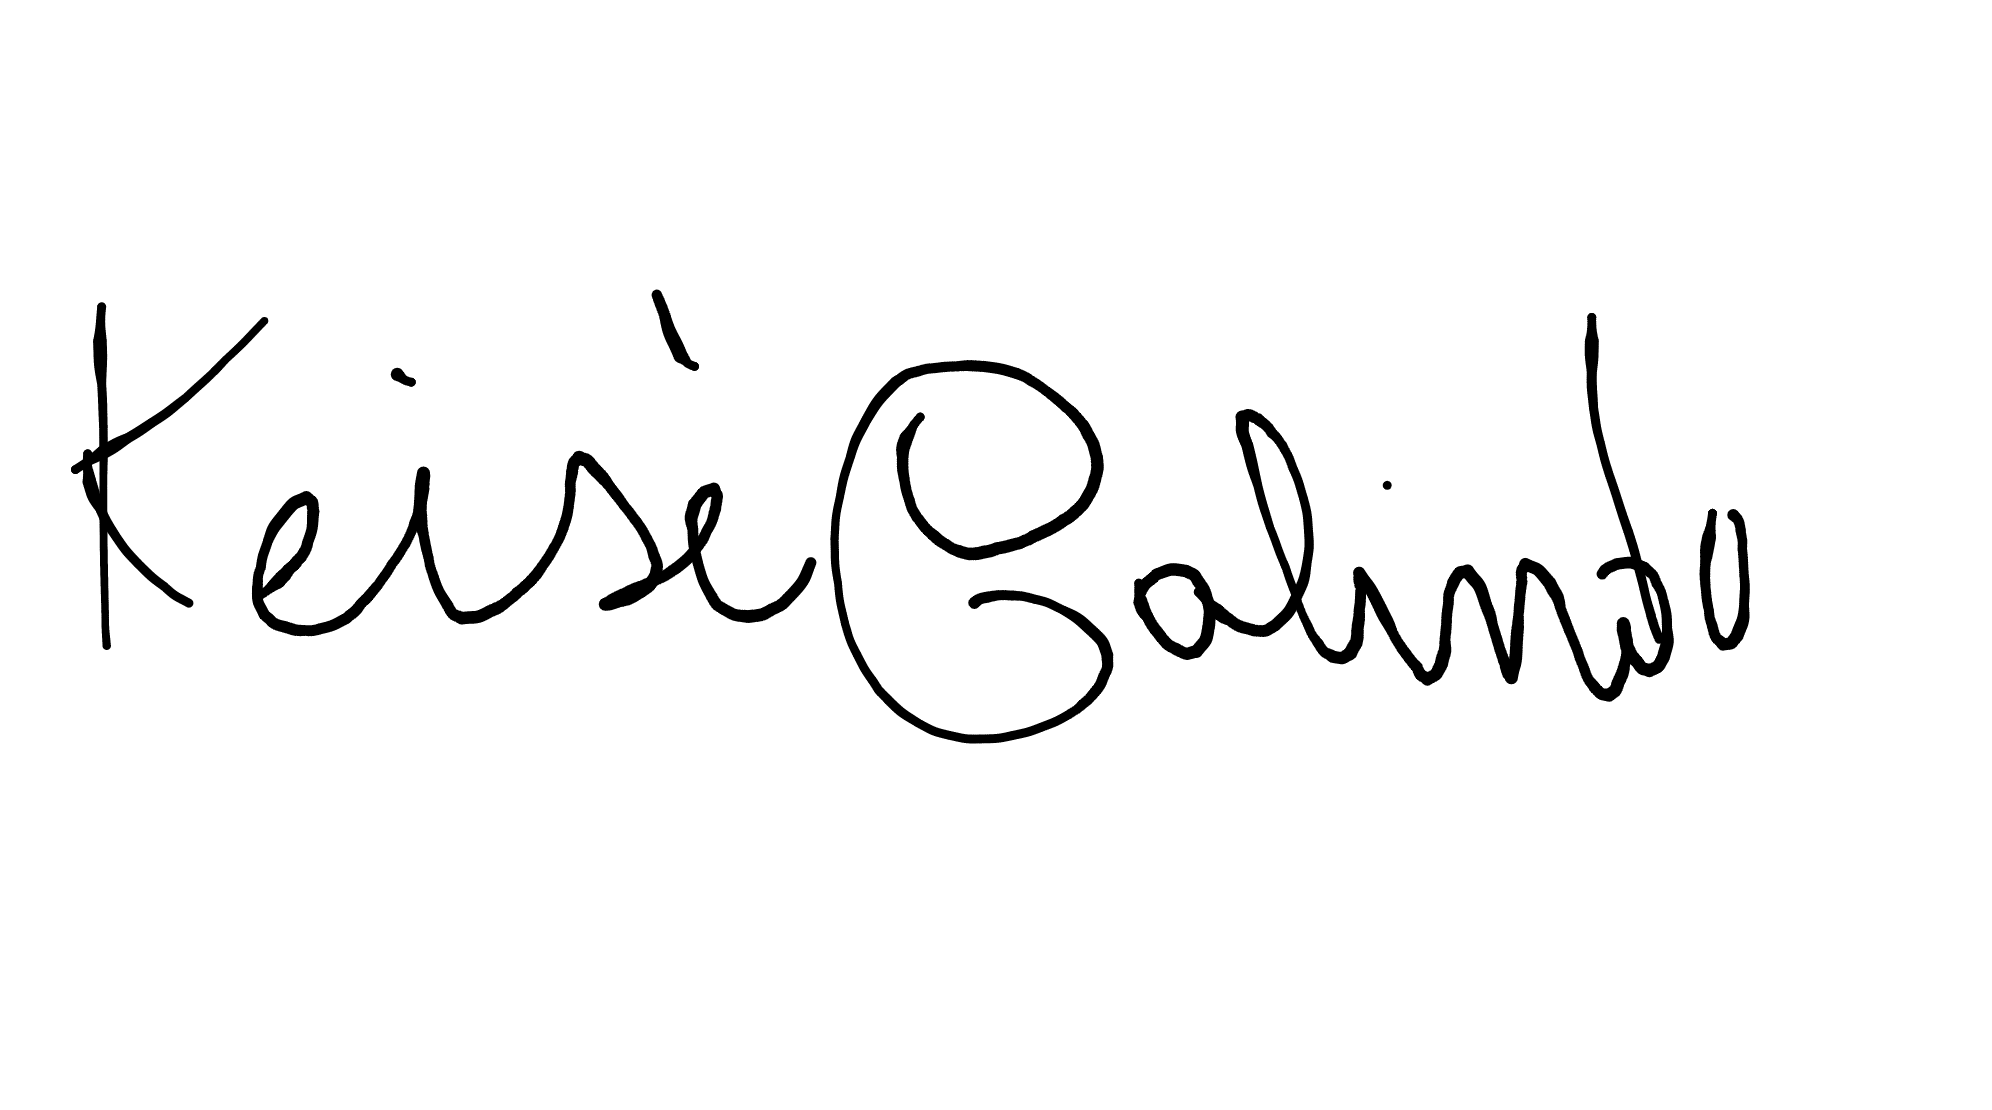 Keisè Galindo